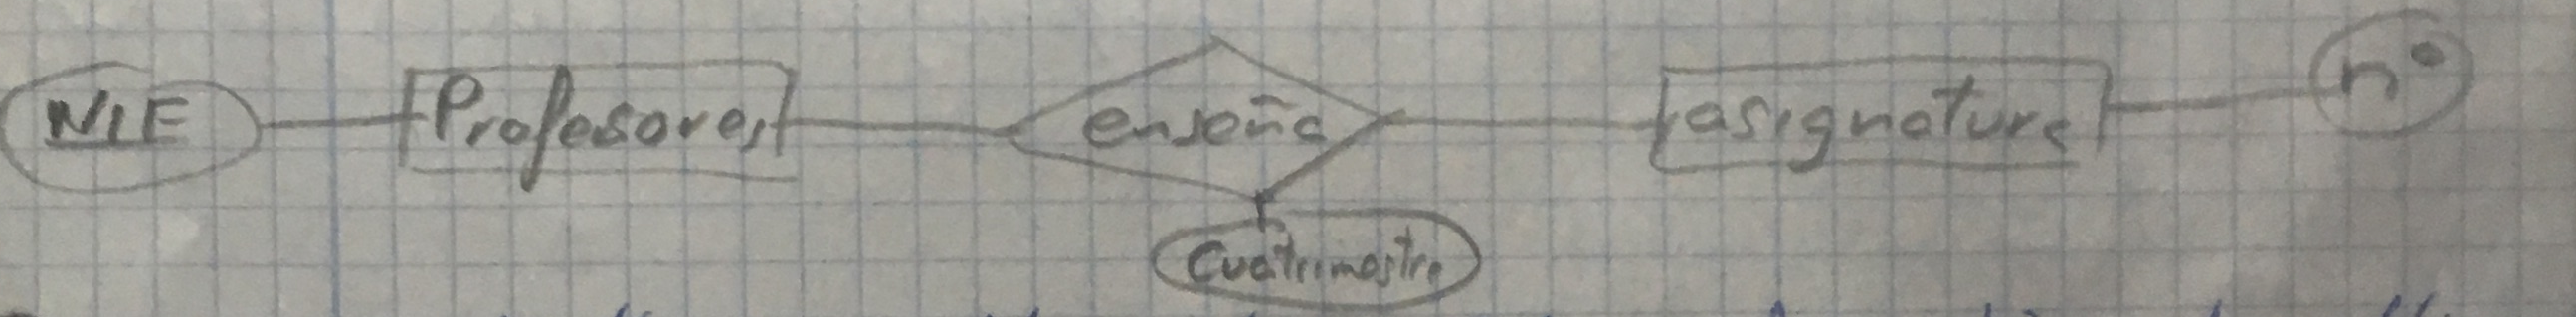 NIE Profesores enseña asignatura nº
Cuatrimestre